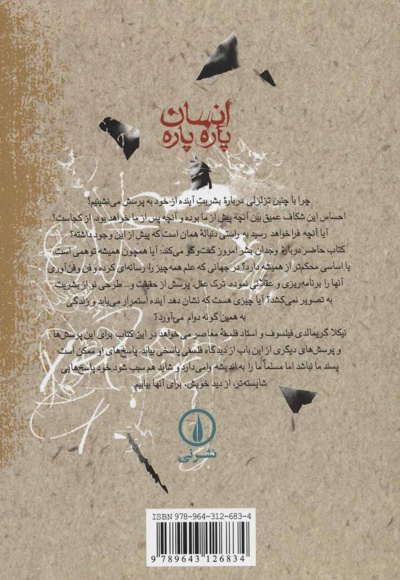 انسان
پاره پاره
چرا با چنین تزلزلی دربارهٔ بشریت آینده از خود به پرسش می‌نشینیم؟
احساس این شکاف عمیق بین آنچه پیش از ما بوده و آنچه پس از ما خواهد بود از کجاست؟
آیا آنچه فرا خواهد رسید به راستی دنبالهٔ همان است که پیش از این وجود داشته؟
کتاب حاضر دربارهٔ وجدان بشر امروز گفت‌وگو می‌کند: آیا همچون همیشه توهمی است
یا اساسی محکم‌تر از همیشه دارد؟ در جهانی که علم همه‌چیز را رسانه‌ای کرده و فن وفن‌آوری
آنها را برنامه‌ریزی و عقلانی نموده، ترک عقل، پرسش از حقیقت و... طرحی نو از بشریت
به تصویر نمی‌کشد؟ آیا چیزی هست که نشان دهد آینده استمرار می‌یابد و زندگی
به همین گونه دوام می‌آورد؟
نیکلا گریمالدی فیلسوف و استاد فلسفهٔ معاصر می‌خواهد در این کتاب برای این پرسش‌ها
و پرسش‌های دیگری از این باب از دیدگاه فلسفی پاسخی بیابد. پاسخ‌های او ممکن است
پسند ما نباشد اما مسلماً ما را به اندیشه وامی‌دارد و شاید هم سبب شود خود پاسخ‌هایی
شایسته‌تر، از دید خویش، برای آنها بیابیم.
نشر نی
ISBN 978-964-312-683-4
9 789643 126834